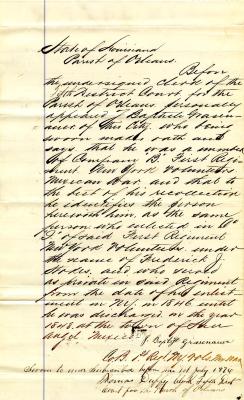 State of Louisiana
Parish of Orleans.
Before
the undersigned clerk of the
Fifth District Court for the
Parish of Orleans personally
appeared J Baptiste
of this City, who being
sworn makes oath and
says that he was a member
of Company B First Regi
ment New York Volunteers
Mexican War, and that to
the best of his recollection
he identifies the person
herewith him, as the same
person who enlisted in
First Regiment
New York Volunteers under
the name of Frederick J
and who served
as private in said Regiment
from the date of his enlist
ment in N.Y. in 1846 until
he was discharged in the year
1848 at the town of San
Angel Mexico
J Baptist
Co B 1st Regt N.Y. Vols
Sworn to and subscribed before me 1st July 1874
Thomas Duffy Clerk Fifth Dist
Court for the Parish of Orleans